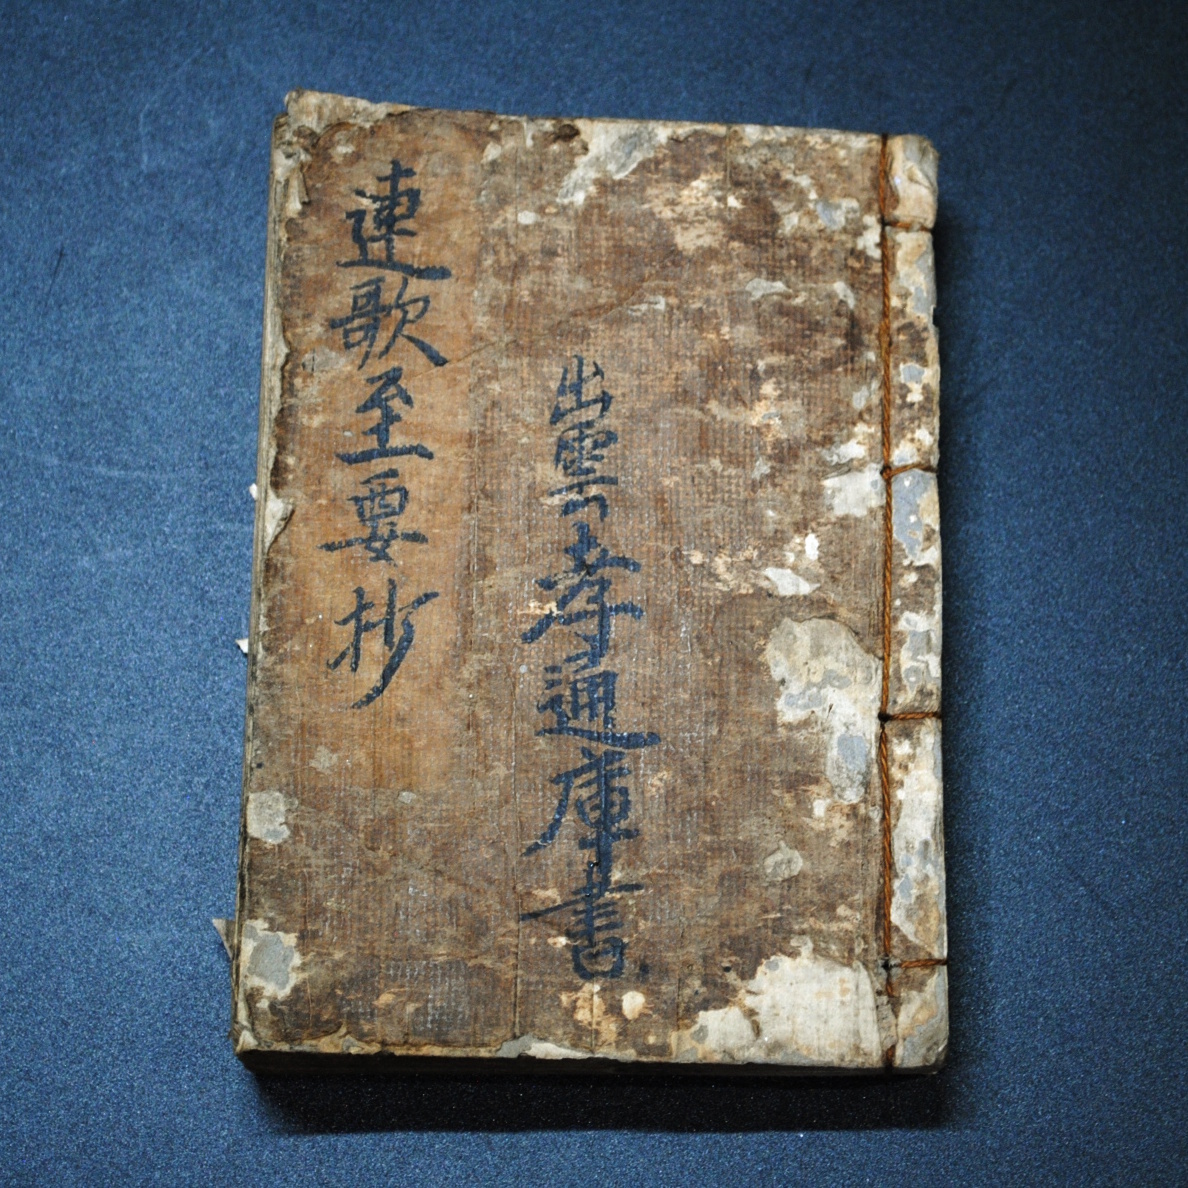 出雲孝通庫書
連歌至要抄